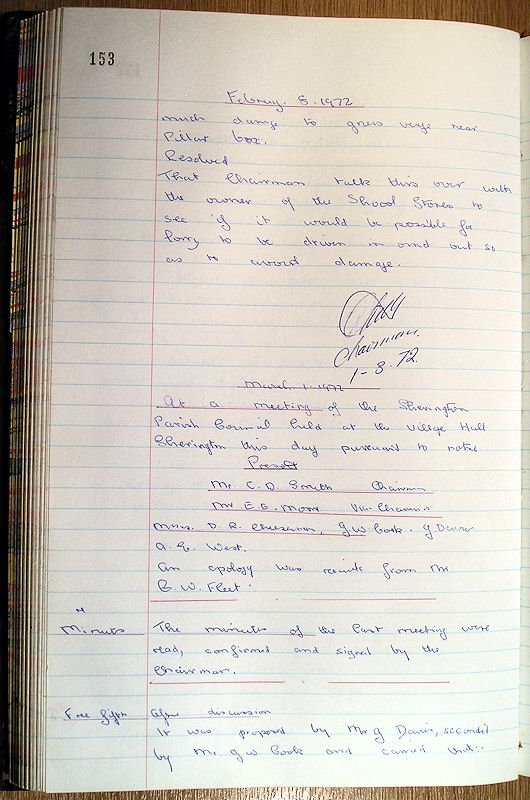 153
February. 8. 1972
much damage to grass verge near
Pillar box.
Resolved
That Chairman talk this over with
the owner of the Shood Stores to
see if it would be possible for
lorry to be driven in and out so
as to avoid damage.
Chairman.
1-3.72.
March 1. 1972
At a meeting of the Sherington
Parish Council held at the Village Hall
Sherington this day pursuant to notice
Present
Mr C.D. Smith Chairman
Mr E.E. Moore Vice-Chairman
Messrs. D.R. Cheeseman, G.W. Cook. G. Davis
A.E. West.
An apology was receiv from Mr
B.W. Fleet.
Minutes
The minutes of the last meeting were
read, confirmed and signed by the
Chairman.
Free gift
After discussion
It was proposed by Mr G Davis, seconded
by Mr. G W Cook and carried